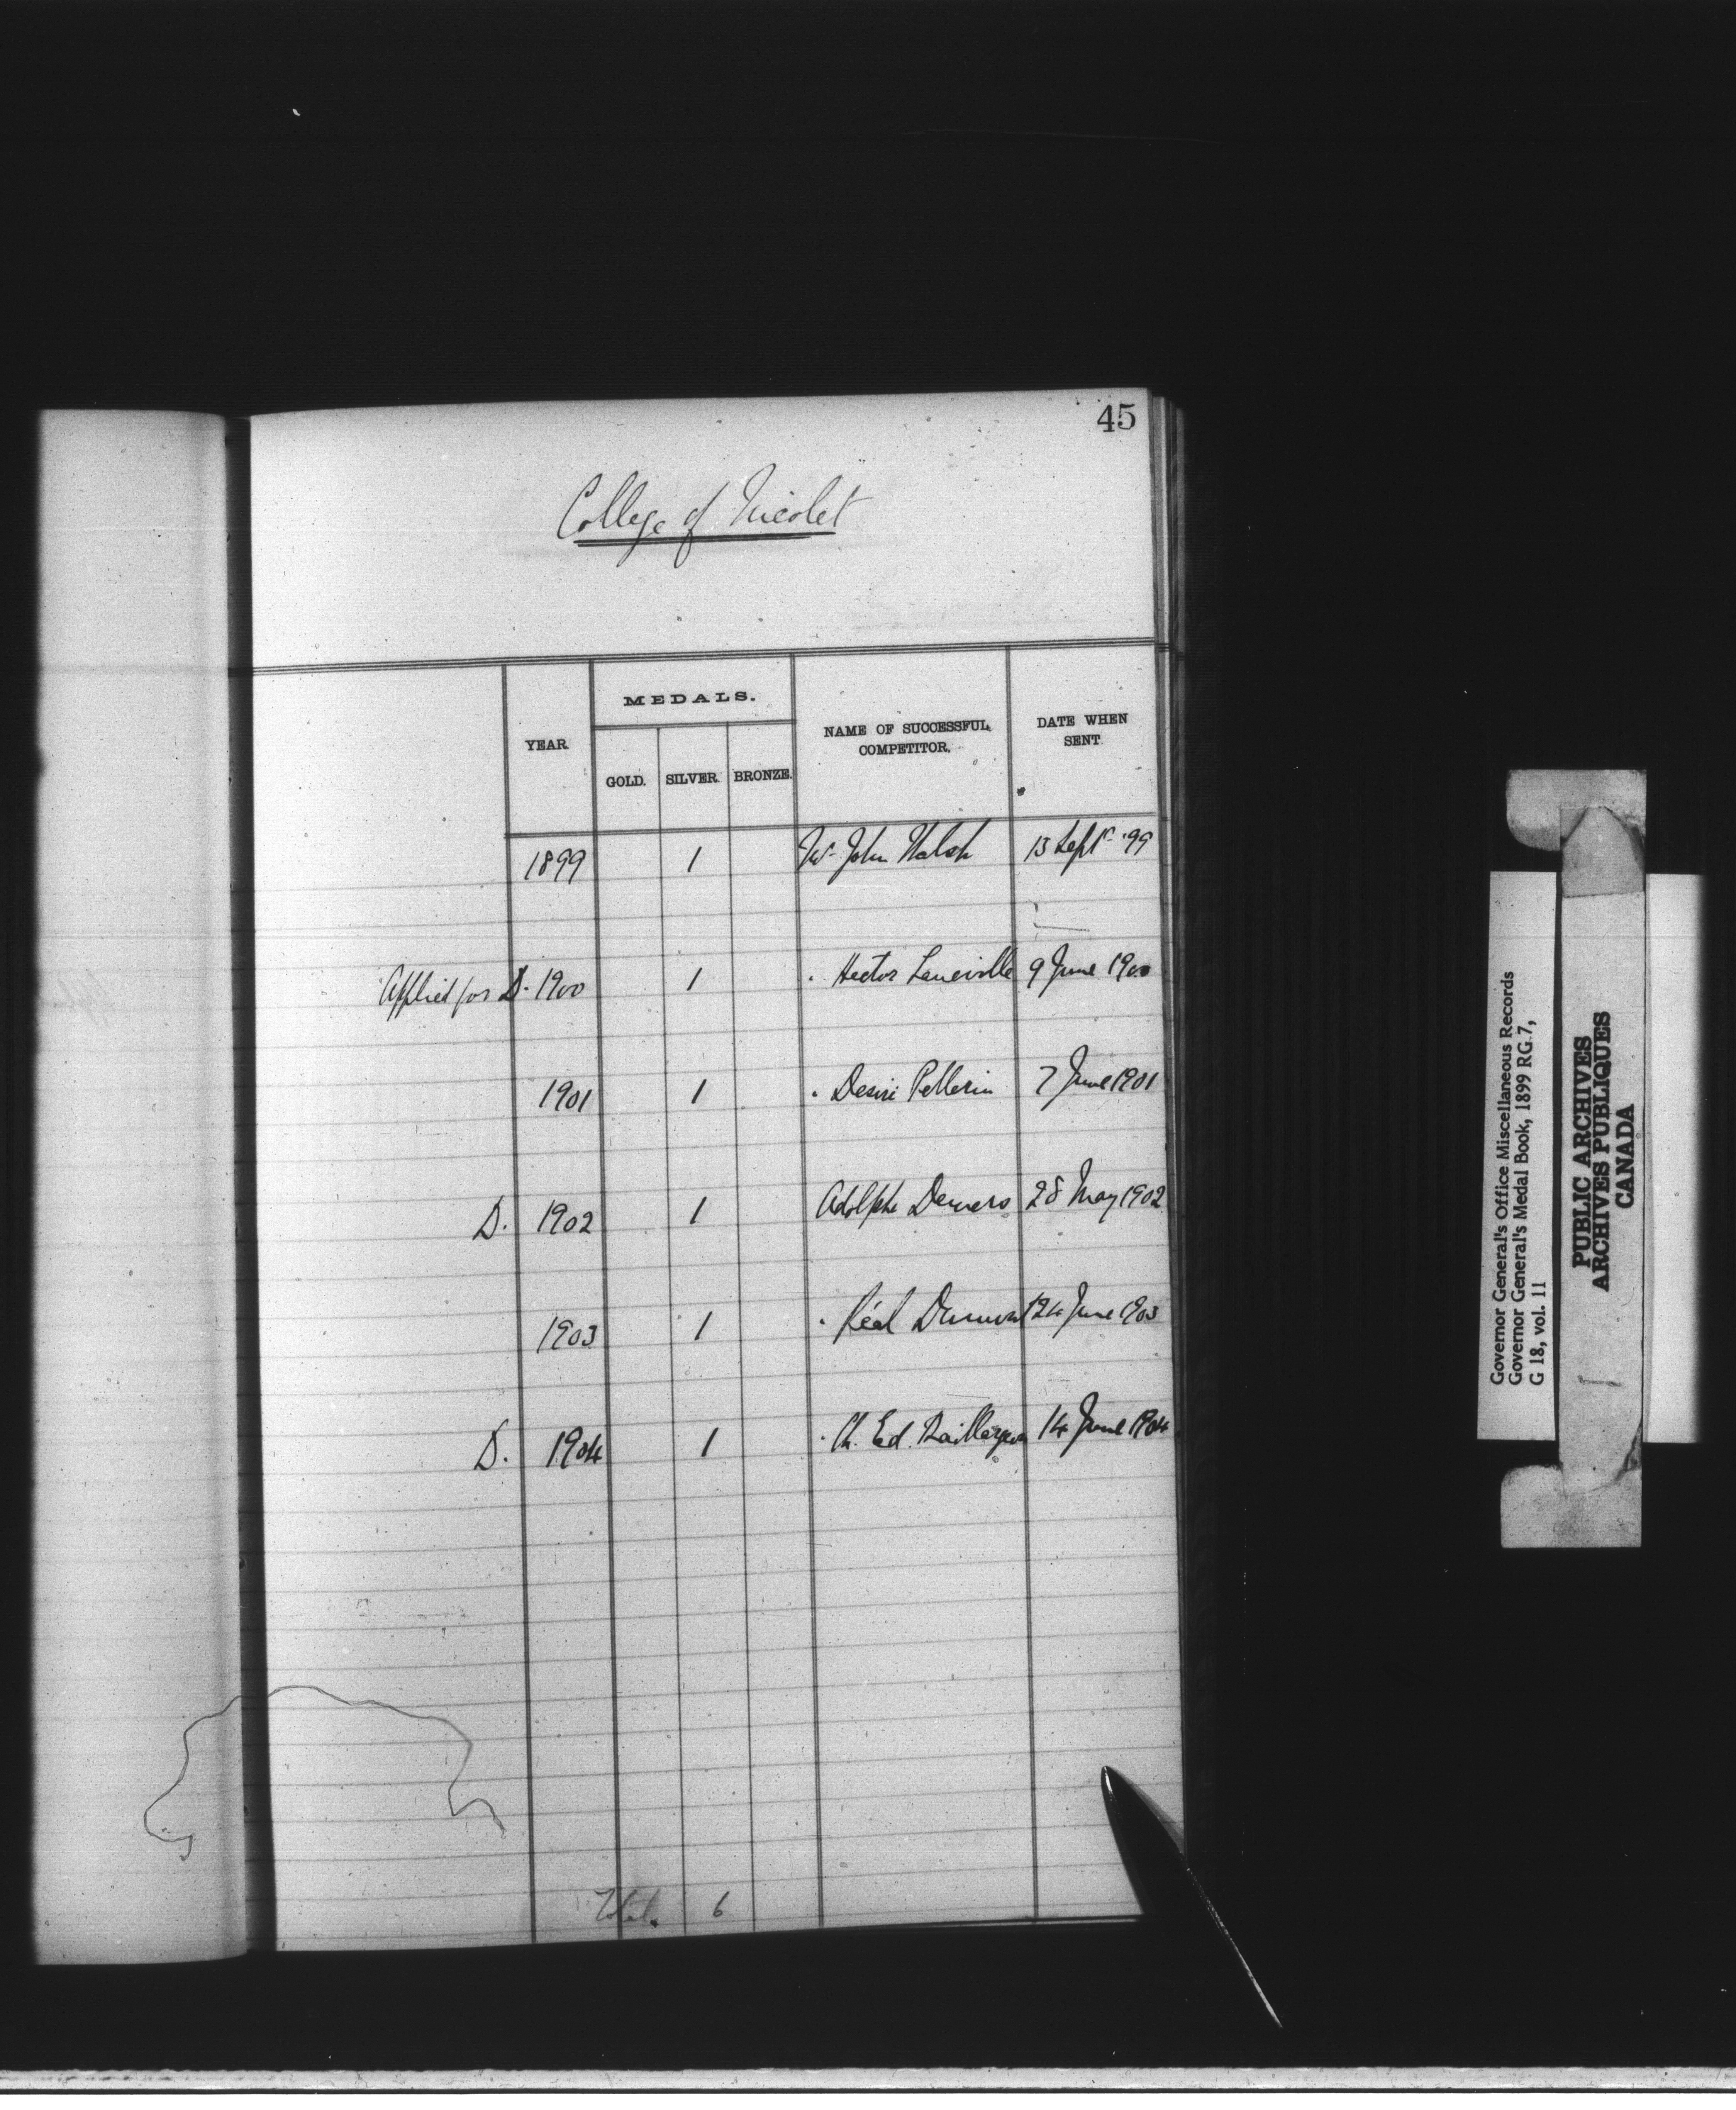 45
College of Nicolet
YEAR. MEDALS. NAME OF SUCCESSFUL COMPETITOR. DATE WHEN SENT.
GOLD. SILVER. BRONZE.
1899 1 John Walsh 13 Septr '99
Applied for D. 1900 1 Hector 9 June 1900
1901 1 Desiré Pellerin 7 June 1901
D. 1902 1 Adolphe Demers 28 May 1902
1903 1 Réal 24 June 1903
D. 1904 1 Ch. Ed. Baillargeon 14 June 1904
Total. 6
Governor General's Office Miscellaneous Records
Governor General's Medal Book, 1899 RG 7,
G 18, vol. 11
PUBLIC ARCHIVES
ARCHIVES PUBLIQUES
CANADA